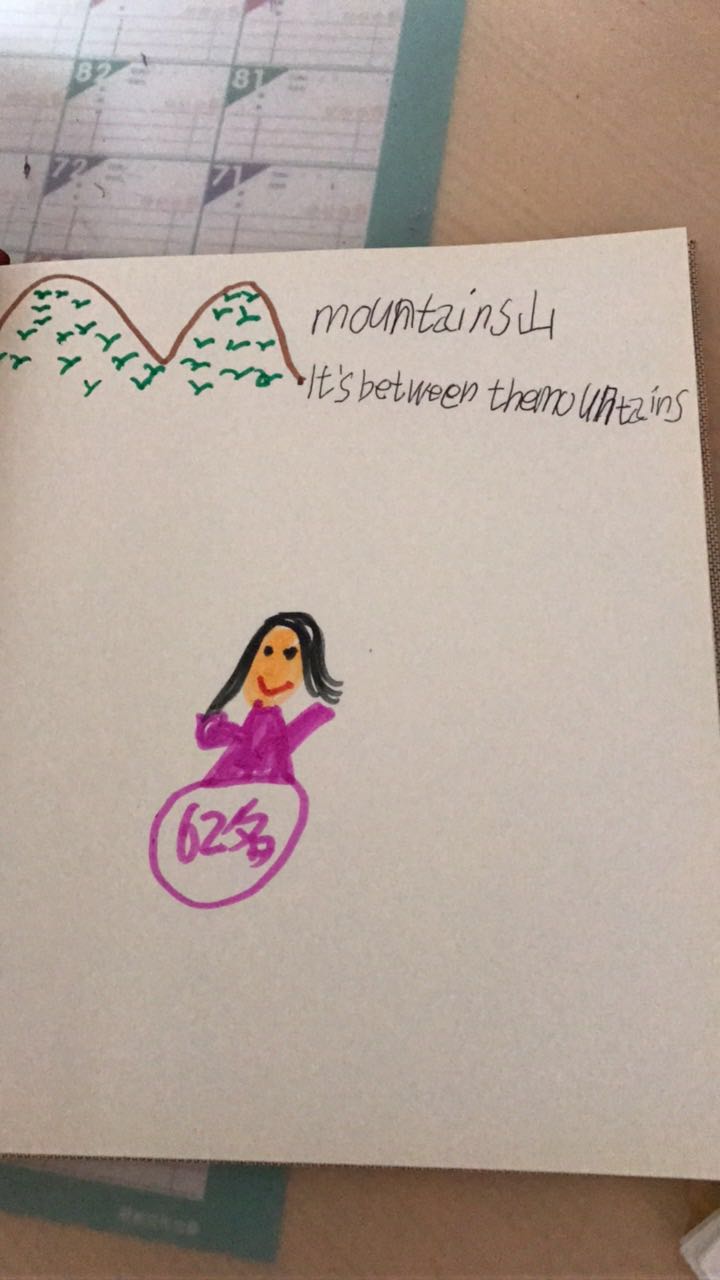 82
81
72
71
mountains山
It's between themountains
62名